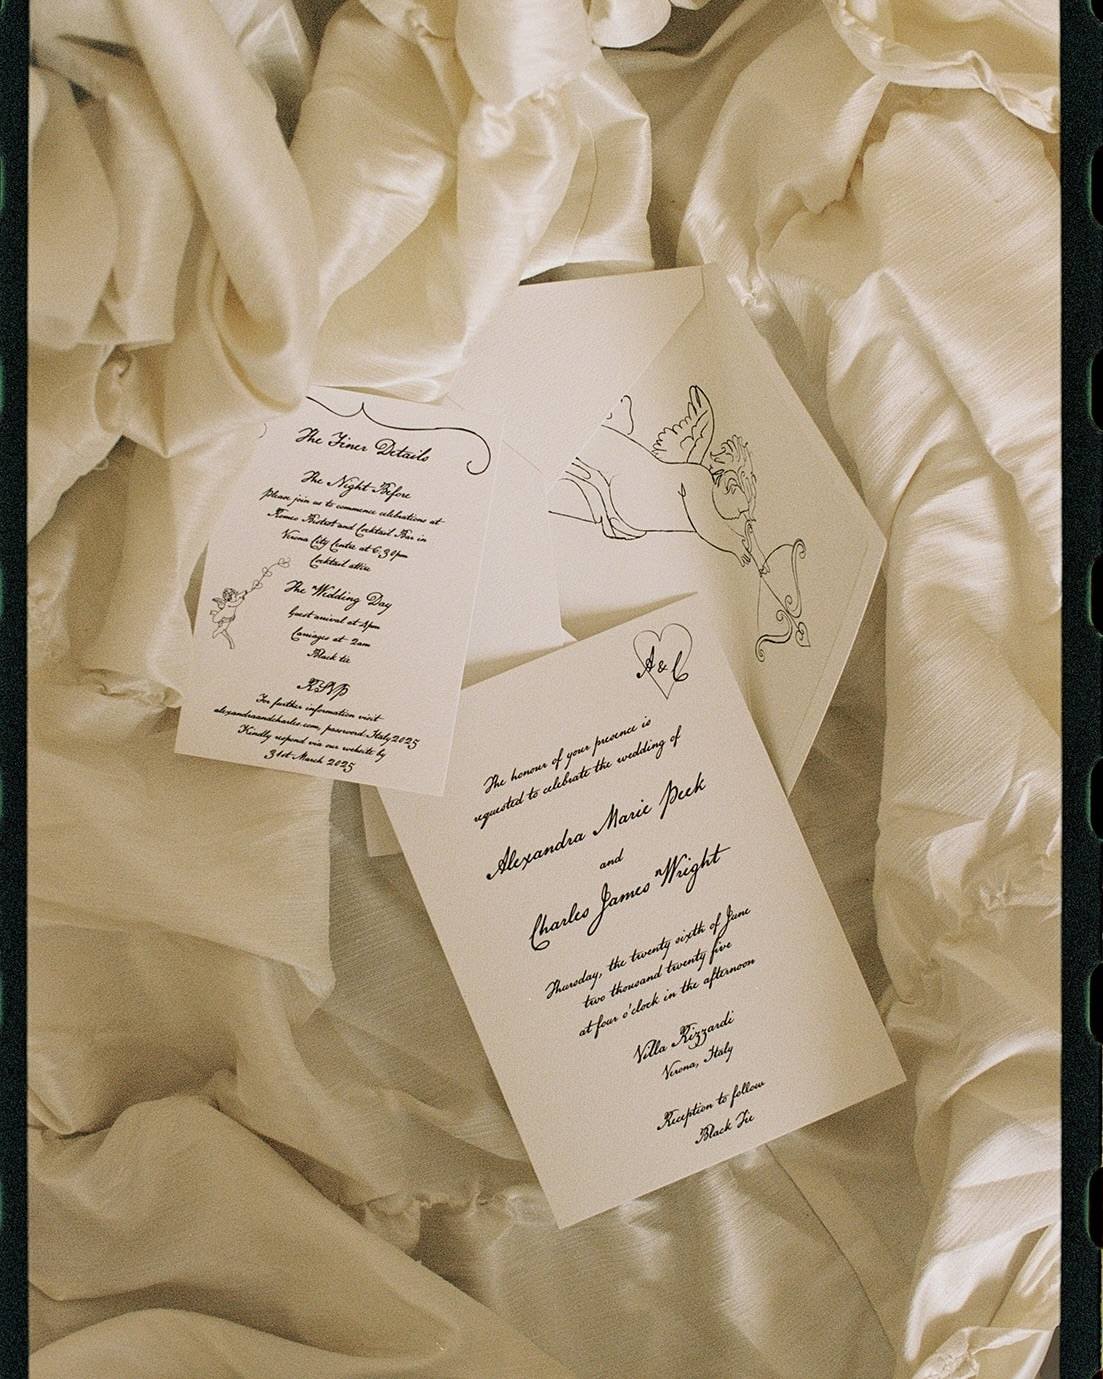 The Finer Details
The Night Before
Please join us to commence celebrations at
Romeo Bistrot and Cocktail Bar in
Verona City Centre at 6.30pm
Cocktail attire
The Wedding Day
Guest arrival at 4pm
Carriages at 2am
Black tie
RSVP
For further information visit
alexandraandcharles.com, password: Italy2025
Kindly respond via our website by
31st March 2025
A & C
The honour of your presence is
requested to celebrate the wedding of
Alexandra Marie Peck
and
Charles James Wright
Thursday, the twenty sixth of June
two thousand twenty five
at four o'clock in the afternoon
Villa Rizzardi
Verona, Italy
Reception to follow
Black Tie